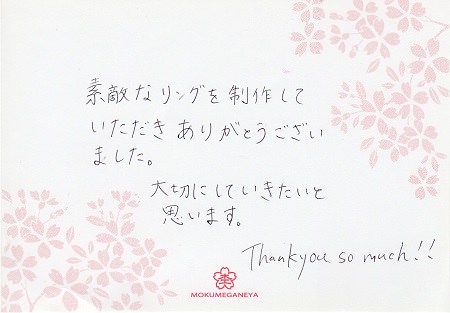 素敵なリングを制作して
いただきありがとうござい
ました。
大切にしていきたいと
思います。
Thankyou so much!!
MOKUMEGANEYA